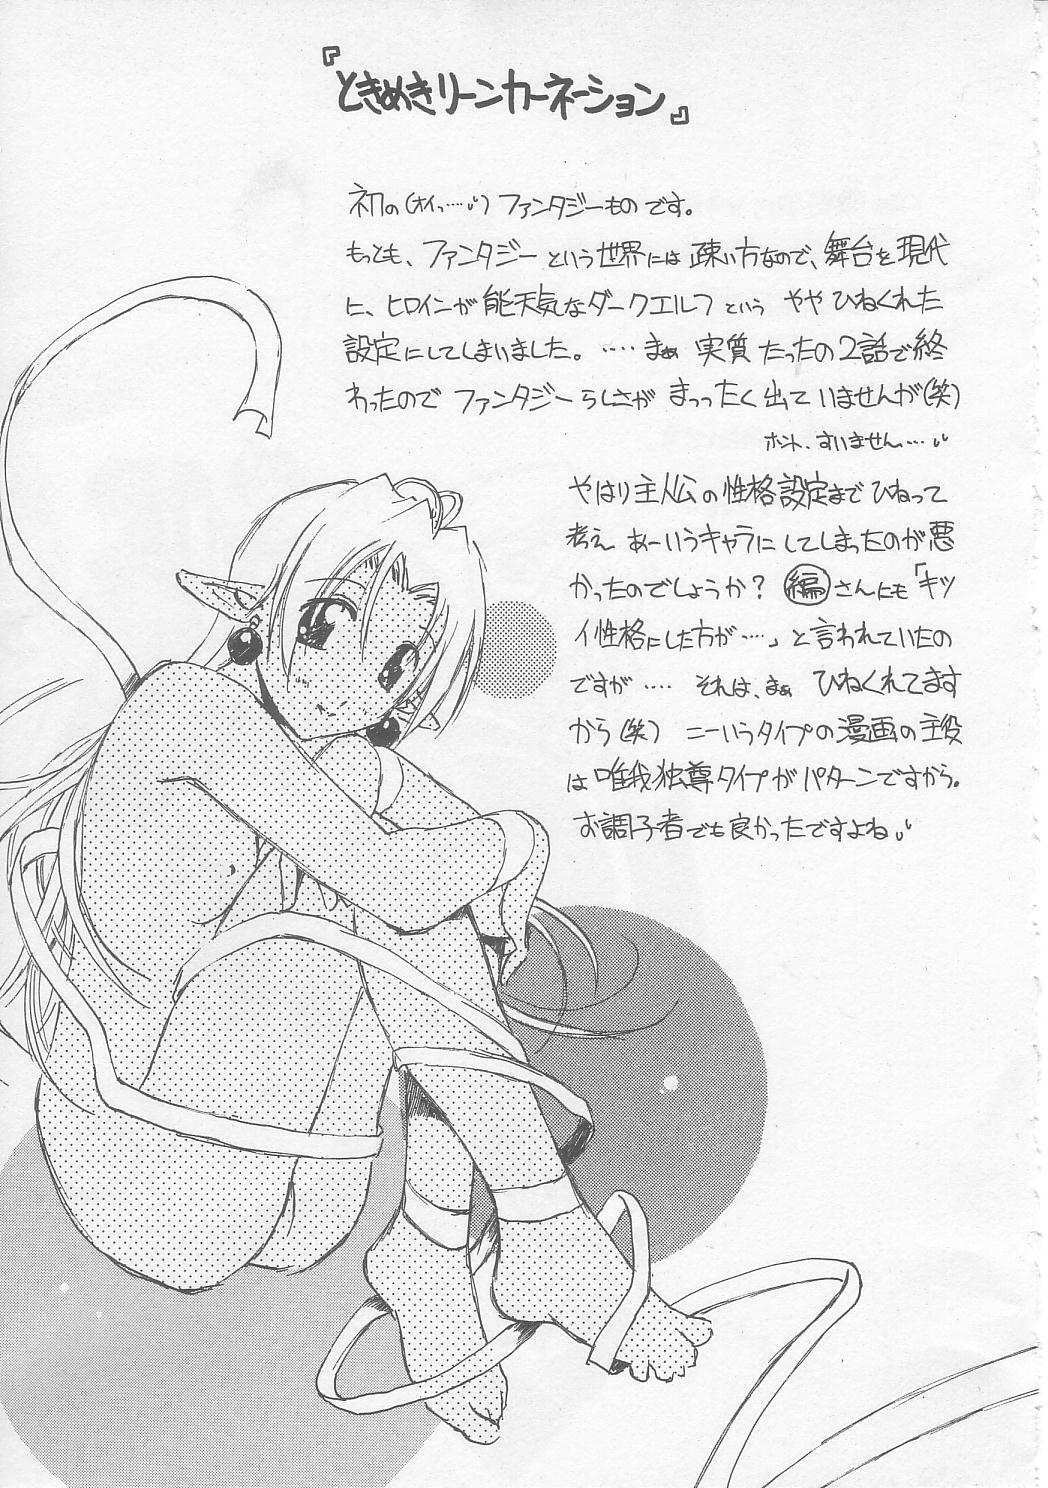 『ときめきリーンカーネーション』
初の(オイっ……〃)ファンタジーものです。
もっとも、ファンタジーという世界には疎い方なので、舞台を現代
に、ヒロインが能天気なダークエルフという ややひねくれた
設定にしてしまいました。……まぁ 実質たったの2話で終
わったので ファンタジーらしさが まっったく出ていませんが(笑)
ホント、すいません…〃
やはり主人公の性格設定までひねって
考え あーいうキャラにしてしまったのが悪
かったのでしょうか? 編さんにも「キツ
イ性格にした方が…。」と言われていたの
ですが…… それは、まぁ ひねくれてます
から(笑) こーいうタイプの漫画の主役
は唯我独尊タイプがパターンですから。
お調子者でも良かったですよね〃